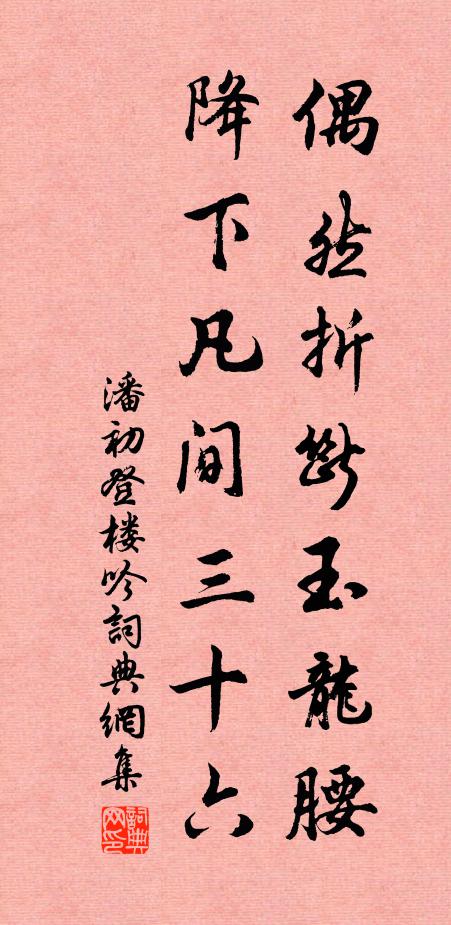 偶然折斷玉龍腰
降下凡间三十六
潘初登楼吟詞典網集
詞典网印